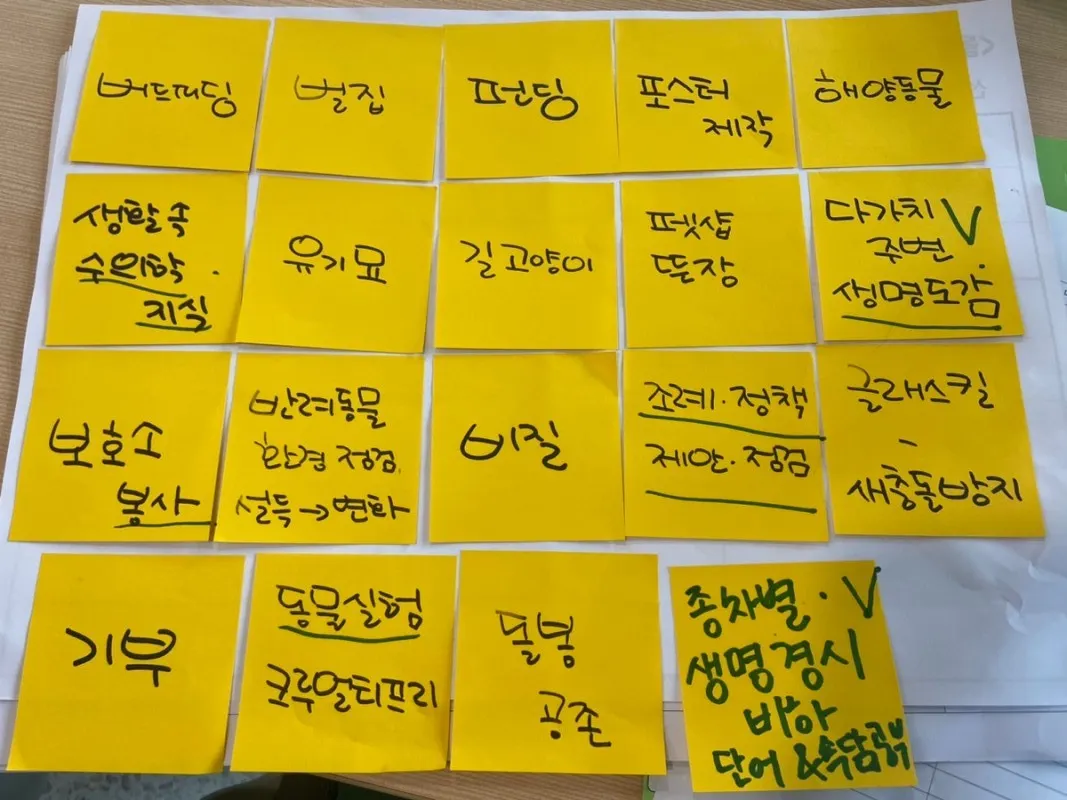 버드피딩
벌집
펀딩
포스터
제작
해양동물
생활 속
수의학
지식
유기묘
길고양이
펫샵
뜬장
다가치 V
주변
생명도감
보호소
봉사
반려동물
환경 점검
설득 → 변화
비질
조례·정책
제안·점검
글래스킬
-
새충돌방지
기부
동물실험
크루얼티프리
공존
종차별· V
생명경시
비하
단어 & 속담공유